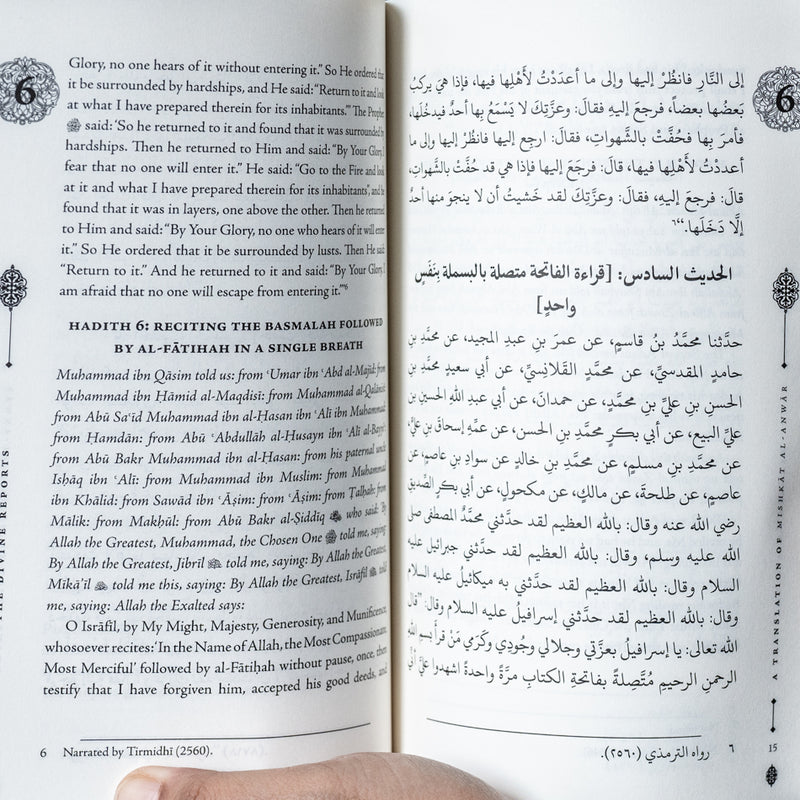 6
Glory, no one hears of it without entering it.” So He ordered that
it be surrounded by hardships, and He said: “Return to it and look
at what I have prepared therein for its inhabitants.” The Prophet
ﷺ said: ‘So he returned to it and found that it was surrounded by
hardships. Then he returned to Him and said: “By Your Glory, I
fear that no one will enter it.” He said: “Go to the Fire and look
at it and what I have prepared therein for its inhabitants”, and he
found that it was in layers, one above the other. Then he returned
to Him and said: “By Your Glory, no one who hears of it will enter
it.” So He ordered that it be surrounded by lusts. Then He said
“Return to it.” And he returned to it and said: “By Your Glory, I
am afraid that no one will escape from entering it.”’⁶
HADITH 6: RECITING THE BASMALAH FOLLOWED
BY AL-FĀTIHAH IN A SINGLE BREATH
Muhammad ibn Qāsim told us: from ʿUmar ibn ʿAbd al-Majid: from
Muhammad ibn Ḥāmid al-Maqdisī: from Muhammad al-Qalānisī:
from Abū Saʿīd Muhammad ibn al-Ḥasan ibn ʿAlī ibn Muhammad:
from Hamdān: from Abū ʿAbdullāh al-Husayn ibn ʿAlī al-Bayyiʿ:
from Abū Bakr Muhammad ibn al-Hasan: from his paternal uncle
Isḥāq ibn ʿAlī: from Muhammad ibn Muslim: from Muhammad
ibn Khālid: from Sawād ibn ʿĀṣim: from ʿĀṣim: from Ṭalḥah: from
Mālik: from Makḥūl: from Abū Bakr al-Ṣiddīq who said: ‘By
Allah the Greatest, Muhammad, the Chosen One ﷺ told me, saying:
By Allah the Greatest, Jibrīl told me, saying: By Allah the Greatest,
Mīkāʾīl told me this, saying: By Allah the Greatest, Isrāfīl told
me, saying: Allah the Exalted says:
O Isrāfīl, by My Might, Majesty, Generosity, and Munificence,
whosoever recites: ‘In the Name of Allah, the Most Compassionate,
Most Merciful’ followed by al-Fātiḥah without pause, once, then
testify that I have forgiven him, accepted his good deeds, and
6 Narrated by Tirmidhī (2560).
THE DIVINE REPORTS
6
إلى النَّارِ فانظُرْ إليها وإلى ما أعدَدْتُ لأَهْلِها فيها، فإذا هيَ يركبُ
بَعضُها بعضاً، فرجعَ إليهِ فقالَ: وعزَّتِكَ لا يَسْمَعُ بِها أحدٌ فيدخُلَها،
فأمرَ بِها فحُفَّتْ بالشَّهواتِ، فقالَ: ارجِع إليها فانظُرْ إليها وإلى ما
أعددْتُ لأَهْلِها فيها، قالَ: فرجَعَ إليها فإذا هي قد حُفَّتْ بالشَّهواتِ،
قالَ: فرجعَ إليهِ، فقالَ: وعزَّتِكَ لقد خَشيتُ أن لا ينجوَ منها أحدٌ
إلَّا دَخَلَها.“٦
الحديث السادس: [قراءة الفاتحة متصلة بالبسملة بِنَفَسٍ
واحدٍ]
حدَّثنا محمَّدُ بنُ قاسمٍ، عن عمرَ بنِ عبدِ المجيد، عن محمَّدِ بنِ
حامدٍ المقدسيِّ، عن محمَّدٍ القَلانِسيِّ، عن أبي سعيدٍ محمَّدِ بنِ
الحسنِ بنِ عليِّ بنِ محمَّدٍ، عن حمدانَ، عن أبي عبدِ اللهِ الحسينِ بنِ
عليٍّ البيع، عن أبي بكرٍ محمَّدِ بنِ الحسن، عن عمِّهِ إسحاقَ بنِ عليٍّ،
عن محمَّدِ بنِ مسلمٍ، عن محمَّدِ بنِ خالدٍ عن سوادِ بنِ عاصمٍ، عن
عاصمٍ، عن طلحةَ، عن مالكٍ، عن مكحولٍ، عن أبي بكرٍ الصِّدِّيقِ
رضي الله عنه وقال: بالله العظيم لقد حدَّثني محمَّدٌ المصطفى صلى
الله عليه وسلم، وقال: بالله العظيم لقد حدَّثني جبرائيل عليه
السلام وقال: بالله العظيم لقد حدَّثني به ميكائيلُ عليه السلام
وقال: بالله العظيم لقد حدَّثني إسرافيلُ عليه السلام وقال: ”قال
الله تعالى: يا إسرافيلُ بعزَّتي وجلالي وجُودِي وكَرَمي مَنْ قرأَ بسمِ اللهِ
الرحمنِ الرحيمِ مُتَّصِلةً بفاتحةِ الكتابِ مرَّةً واحدةً اشهدوا عليَّ أنِّي
٦ رواه الترمذي (٢٥٦٠).
A TRANSLATION OF MISHKĀT AL-ANWĀR
15